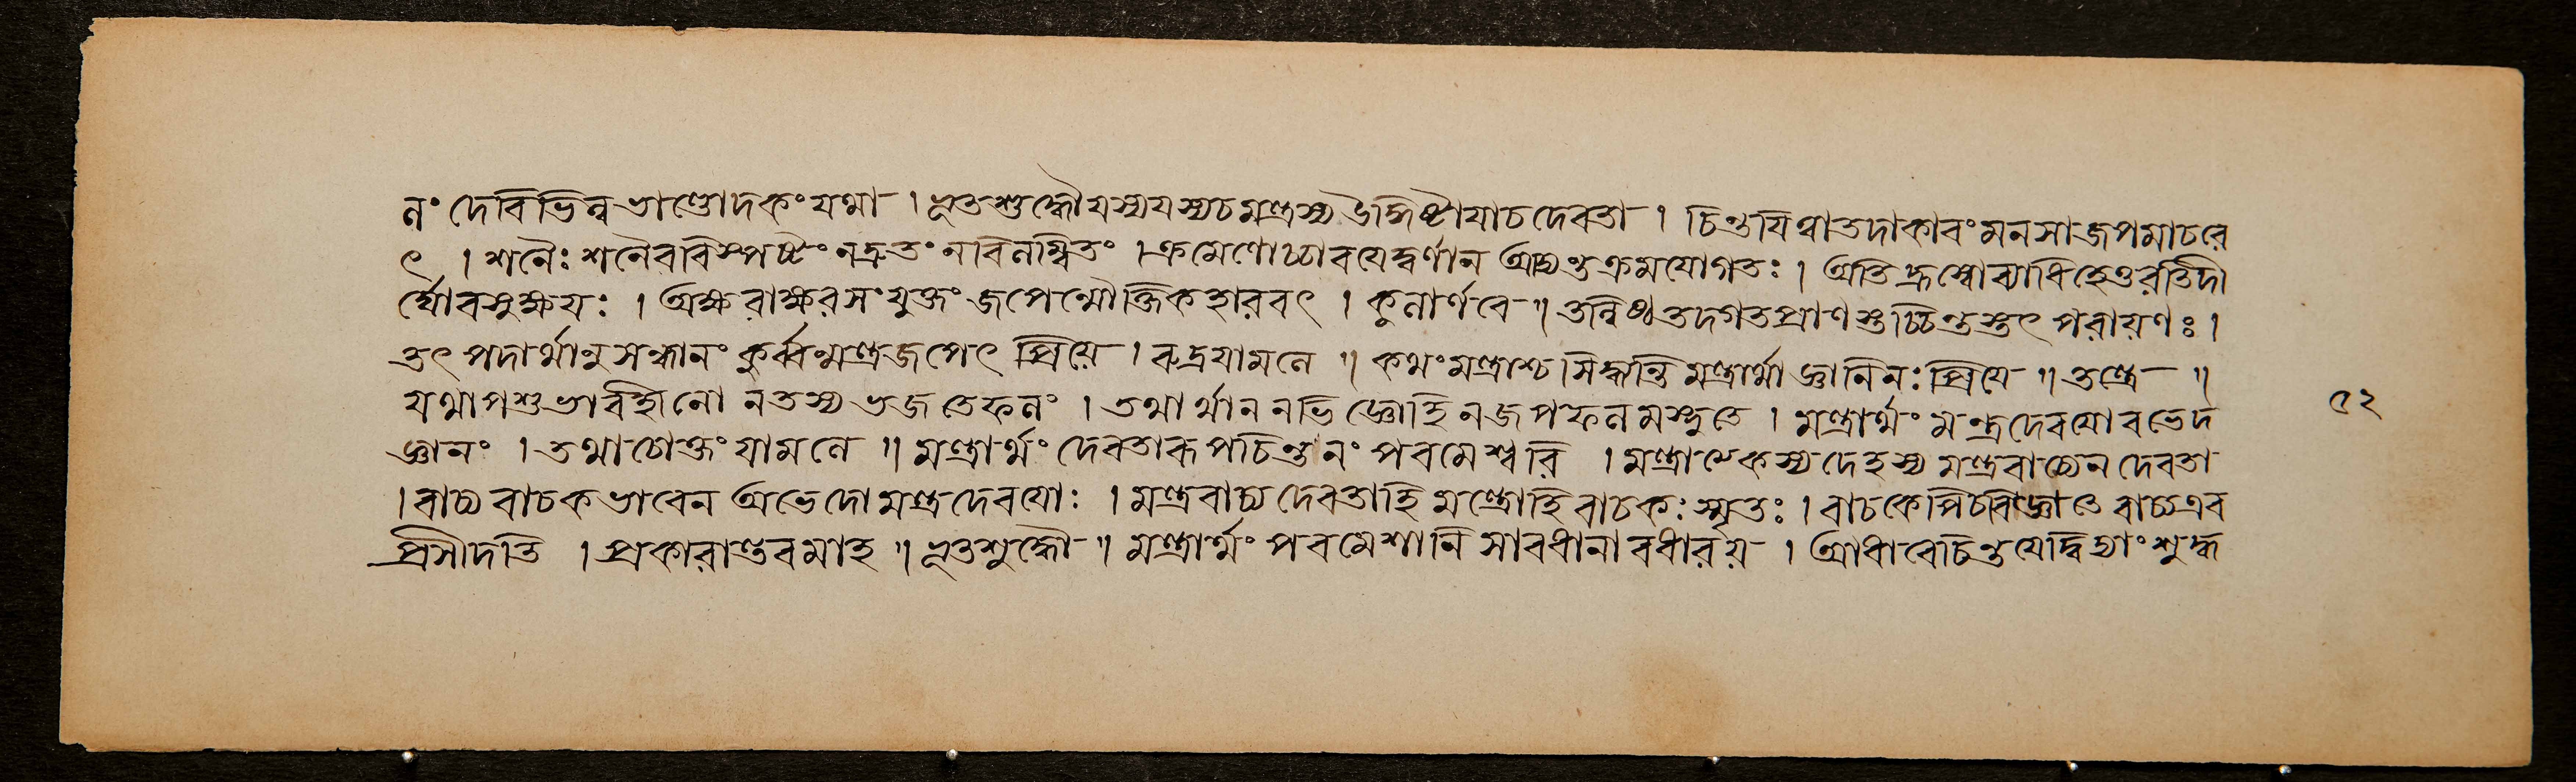 নং দেবি ভিন্নভাণ্ডোদকং যথা । ভূতশুদ্ধৌ যস্য যস্য চ মন্ত্রস্য উদ্দিষ্টা যা চ দেবতা । চিন্তয়িত্বা তদাকারং মনসা জপমাচরে
ৎ । শনৈঃ শনৈরবিস্পষ্টং ন দ্রুতং ন বিলম্বিতং । ক্রমেণোচ্চারয়েদ্বর্ণান আদ্যন্তক্রমযোগতঃ । অতিহ্রস্বো ব্যাধিহেতুরতিদী
র্ঘোবসুক্ষয়ঃ । অক্ষরাক্ষরসংযুক্তং জপেন্মৌক্তিকহারবৎ । কুলার্ণবে ॥ তন্নিষ্ঠ তদ্গতপ্রাণস্তচ্চিত্তস্তৎ পরায়ণঃ ।
তৎ পদার্থানুসন্ধানং কুর্ব্বন্মন্ত্র জপেৎ প্রিয়ে । রুদ্রযামলে ॥ কথং মন্ত্রাশ্চ সিদ্ধন্তি মন্ত্রার্থাজ্ঞানিনঃ প্রিয়ে ॥ তন্ত্রে ॥
যথা পশুভারবহীনো ন তস্য ভজতে ফলং । তথার্থানভিজ্ঞোহি ন জপফলমশ্নুতে । মন্ত্রার্থং মন্ত্রদেবয়োরভেদ
জ্ঞানং । তথাচোক্তং যামলে ॥ মন্ত্রার্থং দেবতারূপচিন্তনং পরমেশ্বরি । মন্ত্রাত্মকস্য দেহস্য মন্ত্রবাচ্যেন দেবতা
। বাচ্যবাচকভাবেন অভেদো মন্ত্রদেবয়োঃ । মন্ত্রবাচ্য দেবতাহি মন্ত্রোহি বাচকঃ স্মৃতঃ । বাচকেপি চ বিজ্ঞাতে বাচ্য এব
প্রসীদতি । প্রকারান্তরমাহ ॥ ভূতশুদ্ধৌ ॥ মন্ত্রার্থং পরমেশানি সাবধানাবধারয় । আধারে চিন্তয়েদ্বিদ্যাং শুদ্ধ
৫২